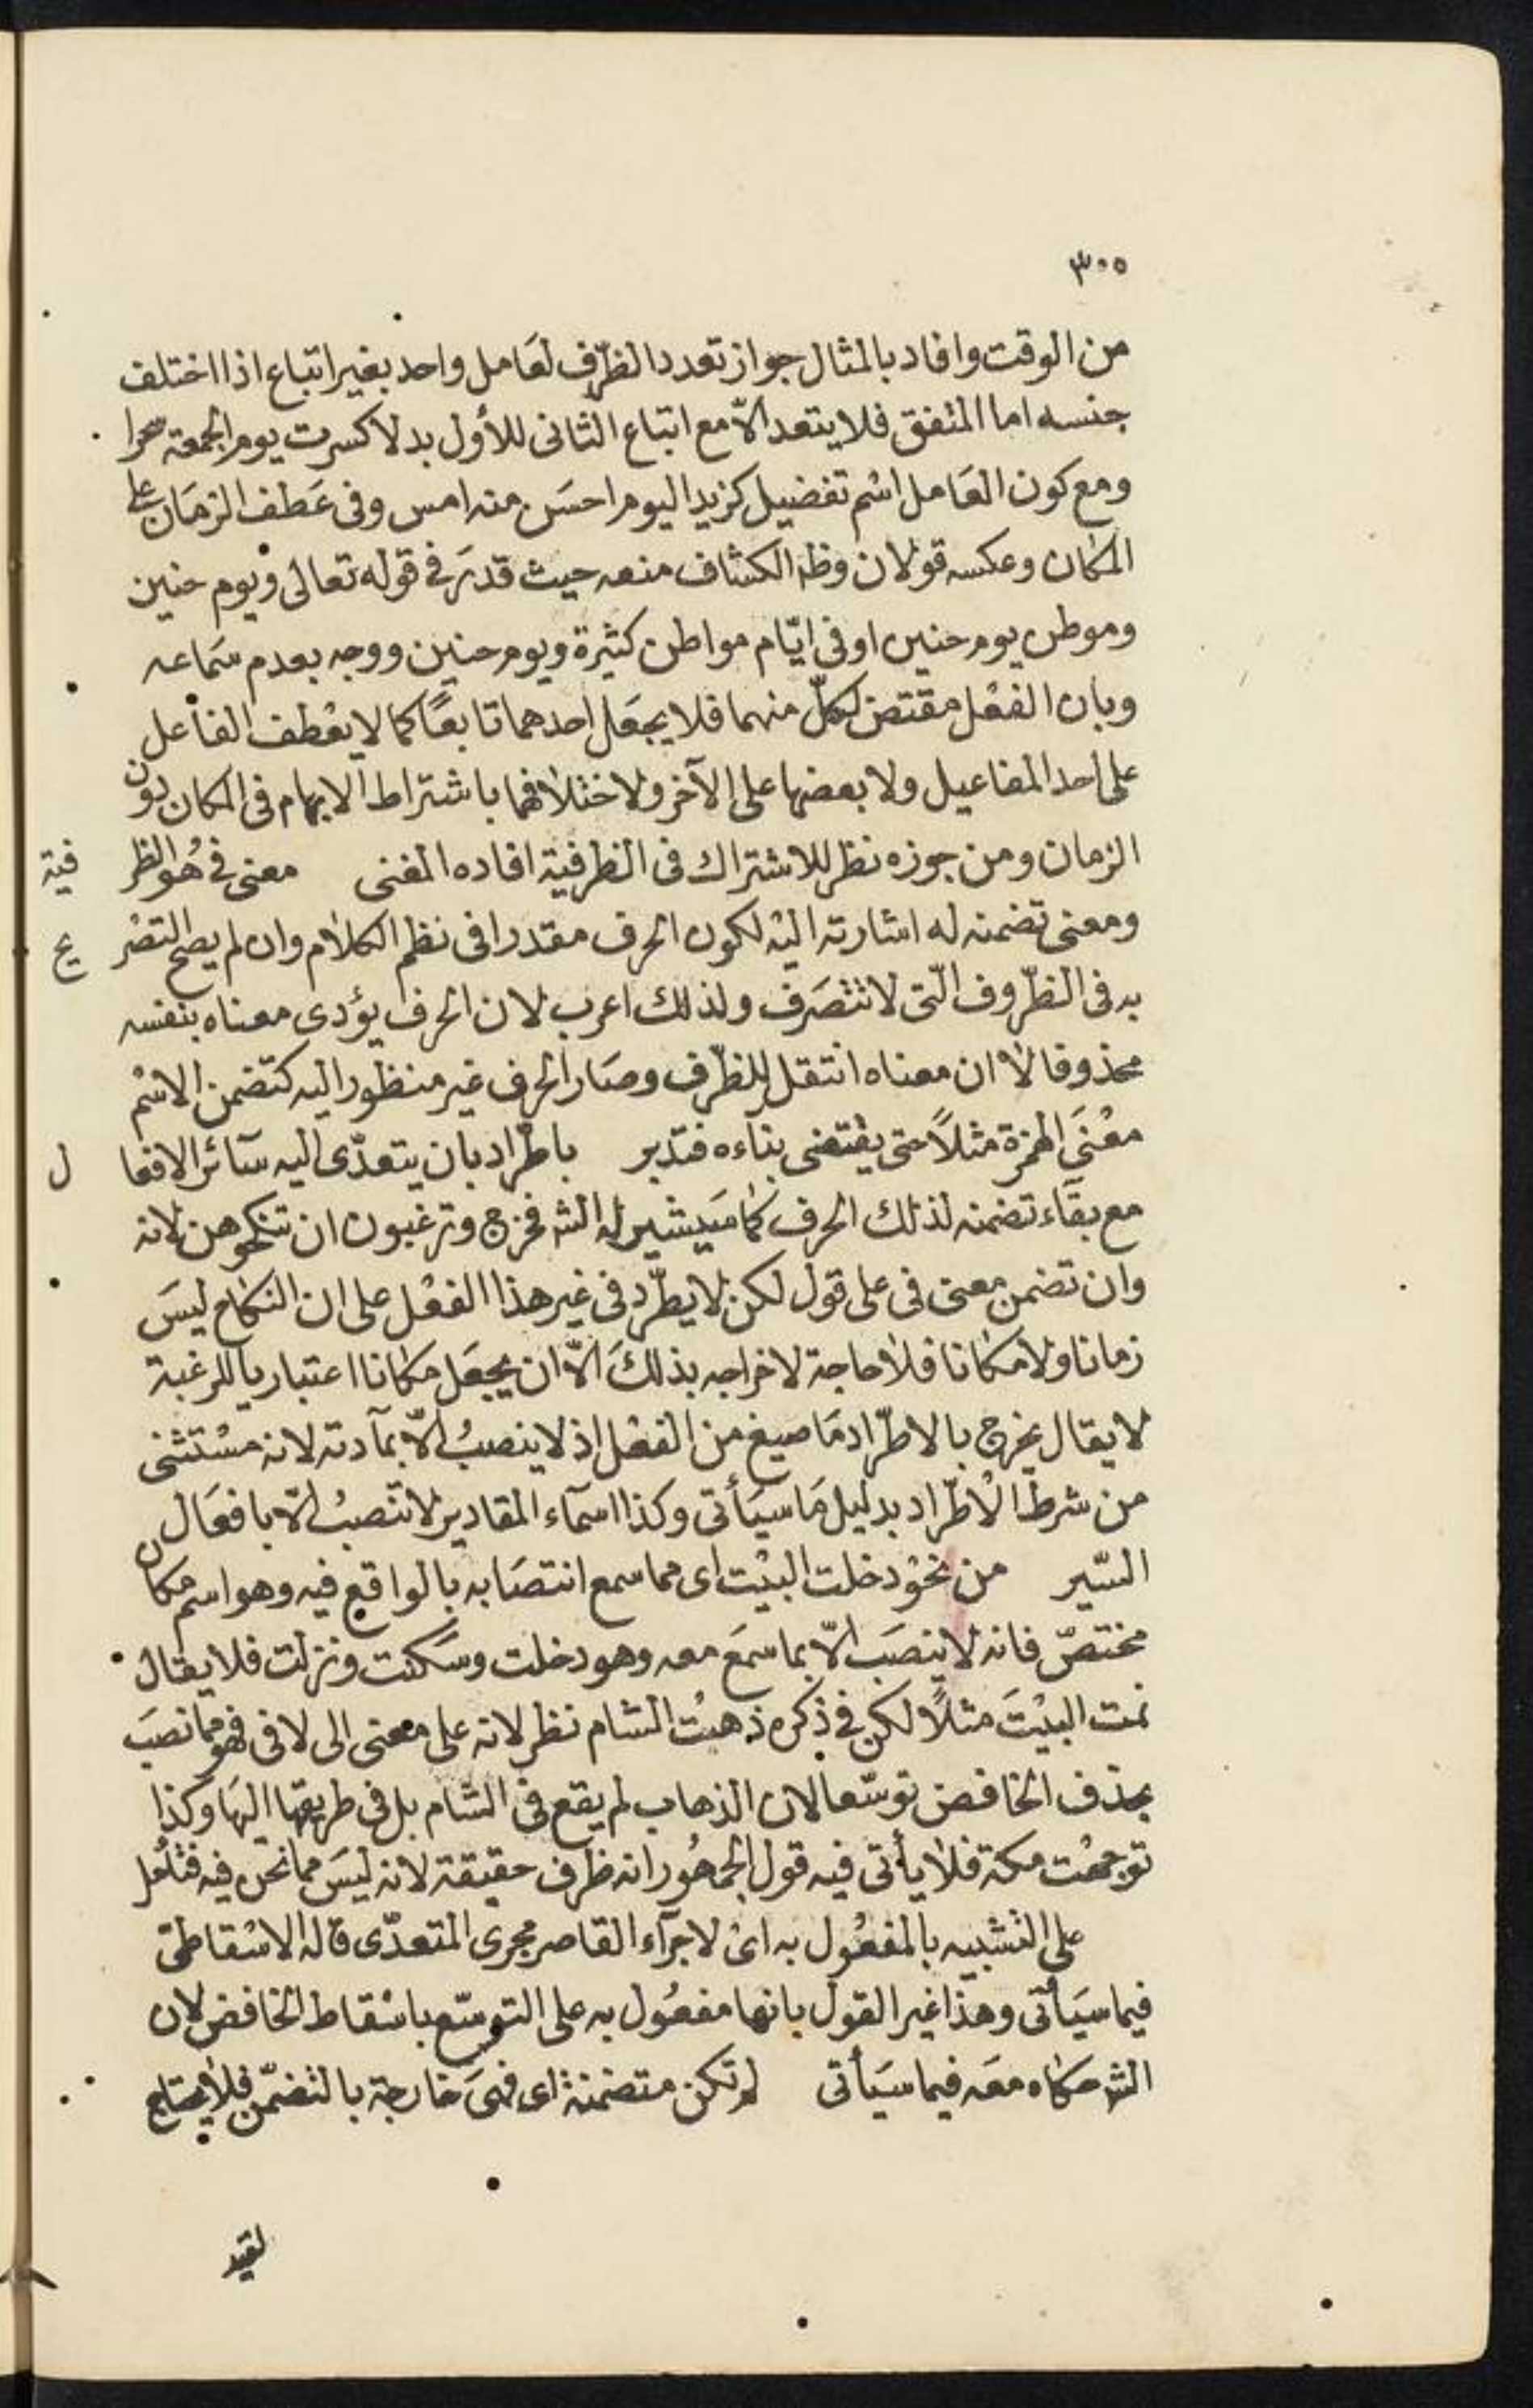 ٣٠٥
من الوقت وافاد بالمثال جواز تعدد الظرف لعَامل واحد بغير اتباع اذا اختلف
جنسه اما المتفق فلا يتعد الّا مع اتباع الثانى للأول بدلا كسرت يوم الجمعة سحرا
ومع كون العَامل اسْم تفضيل كزيد اليوم احسَن منه امس وفى عَطف الزمَان على
المكان وعكسه قولان وظ الكشاف منعه حيث قدرَ فى قوله تعالى ويوم حنين
وموطن يوم حنين او فى ايّام مواطن كثيرة ويوم حنين ووجه بعدم سَماعه
وبان الفعْل مقتض لكلّ منهما فلا يجعَل احدهما تابعًا كما لا يعْطف الفاعل
على احد المفاعيل ولا بعضها على الآخر ولاختلافهما باشتراط الابهام فى المكان دون
الزمان ومن جوزه نظر للاشتراك فى الظرفية افاده المغنى معنى فى هُو الظر فية
ومعنى تضمنه له اشارته اليْه لكون الحرف مقدرا فى نظم الكلام وان لم يصح التصْر يح
به فى الظّروف الّتى لا تتصَرف ولذلك اعرب لان الحرف يؤدى معناه بنفسه
محذوفا لا ان معناه انتقل للظّرف وصَار الحرف غير منظور اليه كتضمن الاسْم
معْنَى الهمزة مثلاً حتى يقتضى بنآءه فتدبر باطّراد بان يتعدّى اليه سآئر الافعا ل
مع بقآء تضمنه لذلك الحرف كما سَيشير له الشه فخرج وترغبون ان تنكحوهن لانه
وان تضمن معنى فى على قول لكن لا يطّرد فى غير هذا الفعْل على ان النكاح ليسَ
زمانا ولا مكانا فلا حاجة لاخراجه بذلكَ الّا ان يجعَل مكانا اعتباريا للرغبة
لا يقال يخرج بالاطّراد مَا صيغ من الفعْل اذ لا ينصبُ الّا بمآدته لانه مسْتثنى
من شرط الاطّراد بدليل مَا سيَأتى وكذا اسمآء المقادير لا تنصبُ الّا بافعَال
السّير من نحوْ دخلت البيْت اى مما سمع انتصَابه بالواقع فيه وهو اسم مكان
مختصّ فانه لا ينصَب الّا بما سمعَ معه وهو دخلت وسَكنت ونزلت فلا يقال
نمت البيْتَ مثلاً لكن فى ذكره ذهبْت الشام نظر لانه على معنى الى لا فى فهو مما نصبَ
بحذف الخافض توسّعا لان الذهاب لم يقع فى الشام بل فى طريقها اليهَا وكذا
توجهْت مكة فلا يأتى فيه قول الجمهُور انه ظرف حقيقة لانه ليسَ مما نحن فيه فتأمل
على التشبيه بالمفعُول به اىْ لاجرآء القاصر مجرى المتعدّى قاله الاسْقاطىّ
فيما سيَأتى وهذا غير القول بانها مفعُول به على التوسّع باسْقاط الخافض لان
الشه حكاه معَه فيما سيَأتى لم تكن متضمنة اى فهىَ خارجة بالتضمّن فلا يحتاج
لقيد